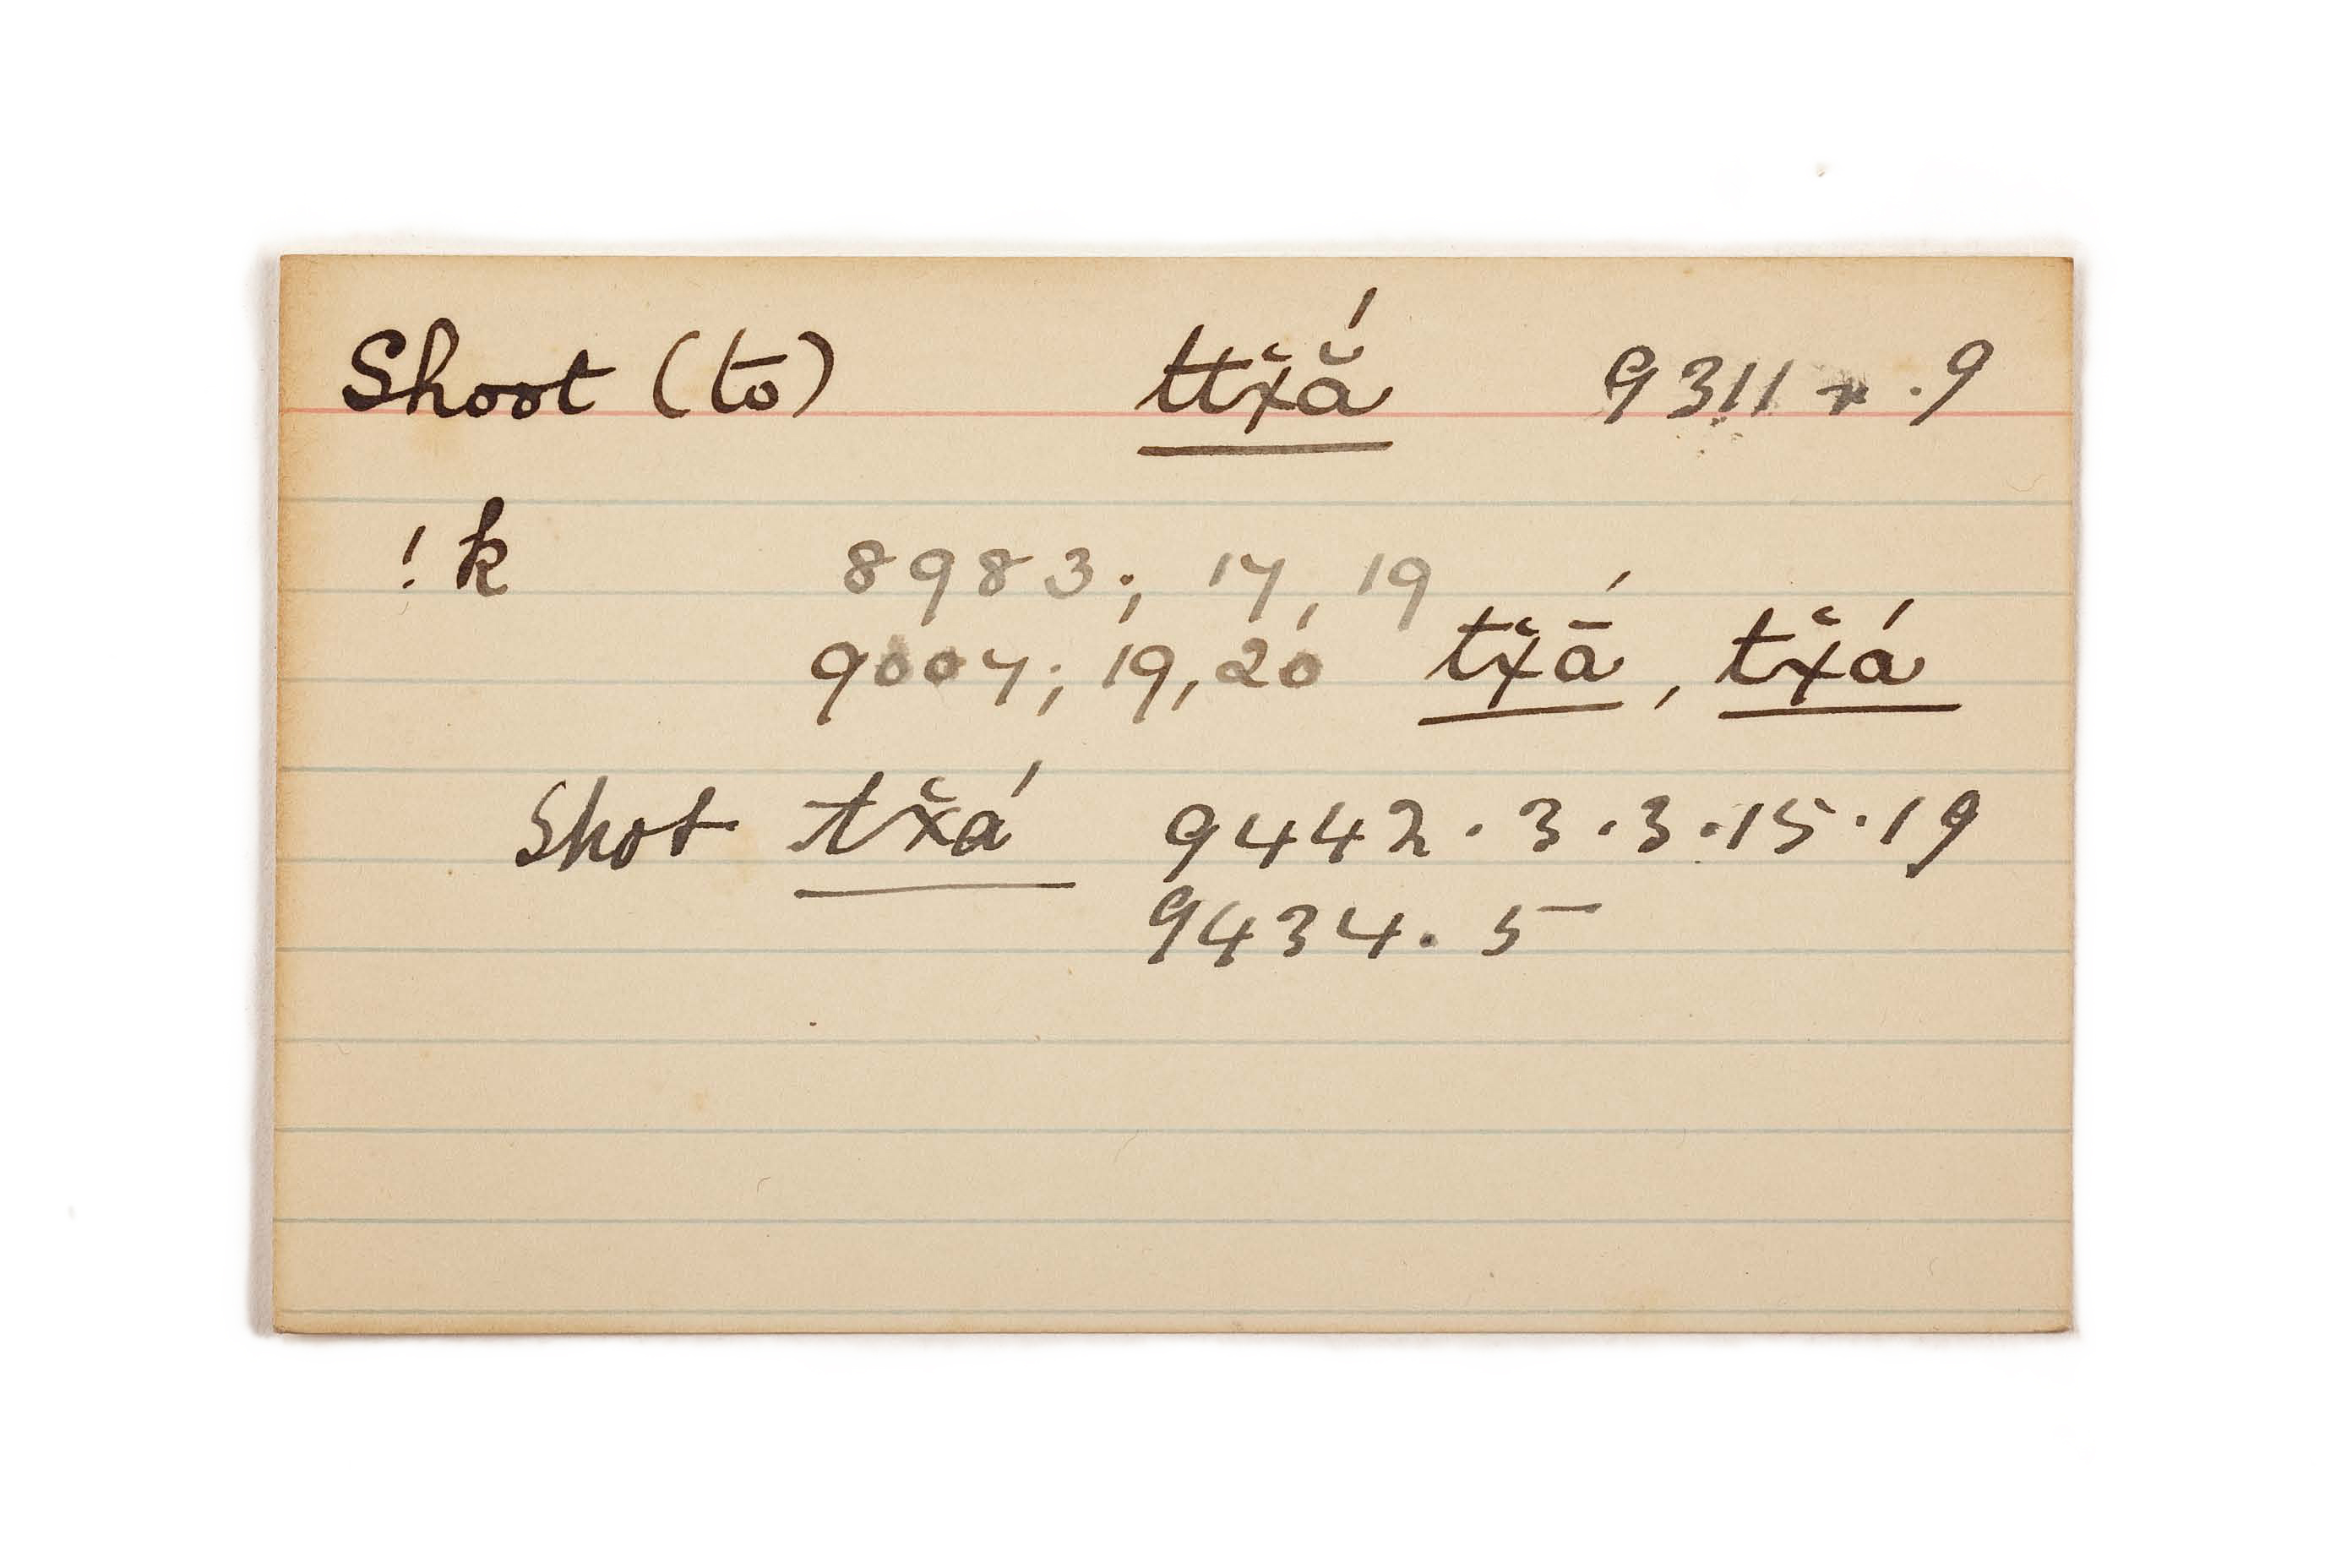 Shoot (to) ttx̆ằ́ 9311 .9
!k 8983; 17, 19
9007; 19, 20 tx̆ā́, tx̆á
Shot tx̆á 9442.3.3.15.19
9434.5